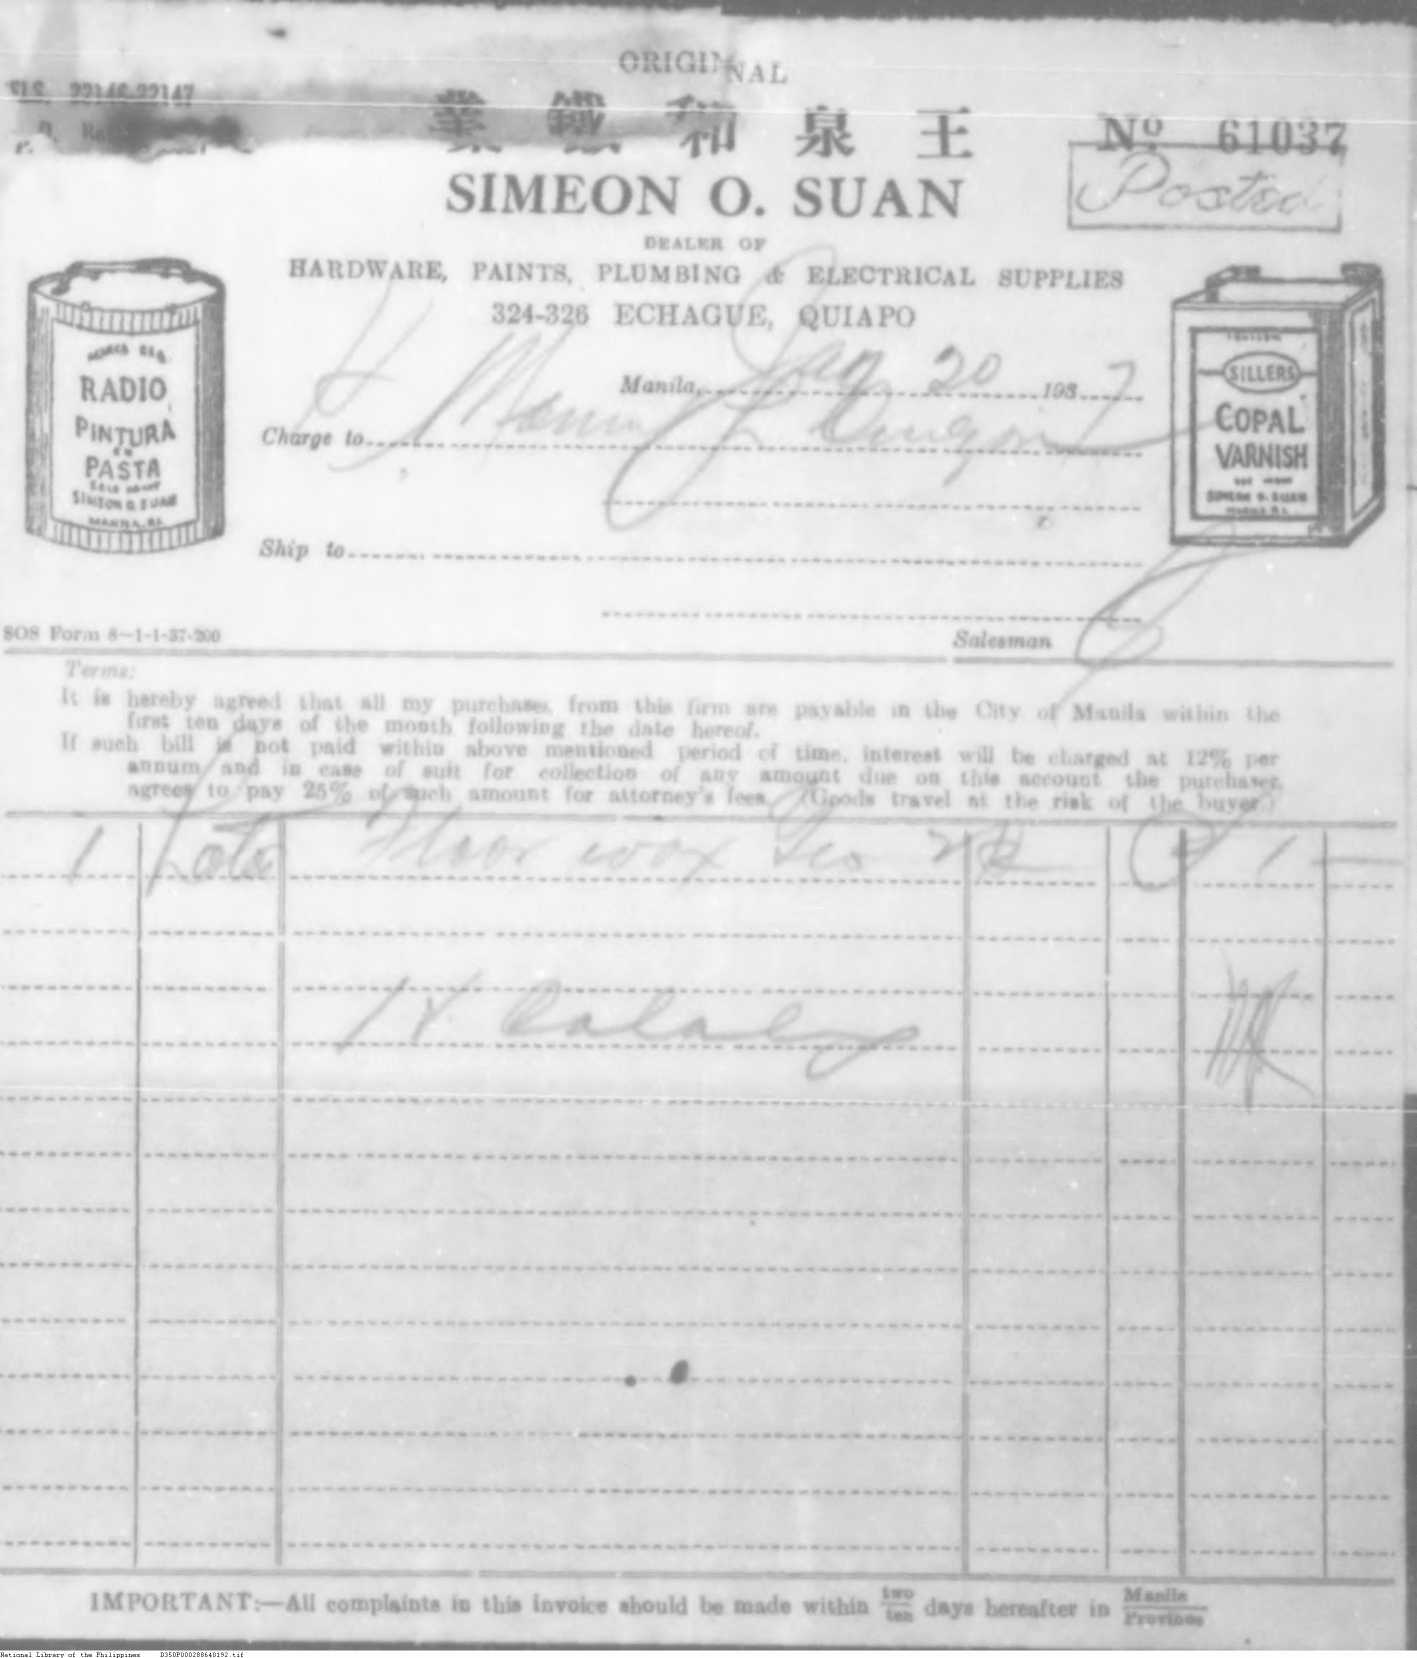 ORIGINAL
22146-22147
業 鐵 和 泉 王
Nº 61037
Posted
SIMEON O. SUAN
DEALER OF
HARDWARE, PAINTS, PLUMBING & ELECTRICAL SUPPLIES
324-326 ECHAGUE, QUIAPO
RADIO
PINTURA
EN
PASTA
SOLD ONLY BY
SIMEON O. SUAN
MANILA, P.I.
SILLERS
COPAL
VARNISH
SIMEON O. SUAN
MANILA, P.I.
Manila, Jan 20 1937
Charge to
Ship to
SOS Form 8—1-1-37-200
Salesman
Terms:
It is hereby agreed that all my purchases, from this firm are payable in the City of Manila within the
first ten days of the month following the date hereof.
If such bill is not paid within above mentioned period of time, interest will be charged at 12% per
annum and in case of suit for collection of any amount due on this account the purchaser,
agrees to pay 25% of such amount for attorney's fees. (Goods travel at the risk of the buyer.)
1 Lata Floor wax 1 —
IMPORTANT:—All complaints in this invoice should be made within two/ten days hereafter in Manila/Province
National Library of the Philippines D350P000288640192.tif